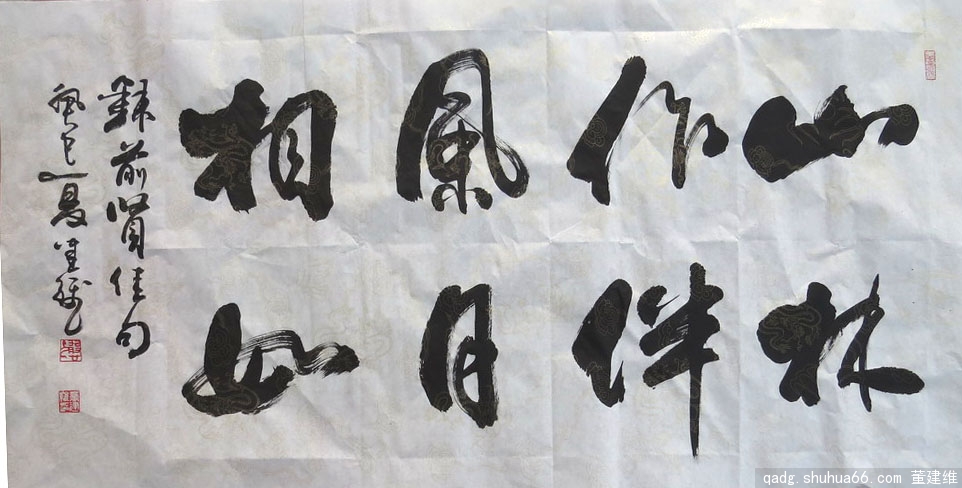 山林
作伴
風月
相知
錄前賢佳句
巳夏
qadg.shuhua66.com 董建维